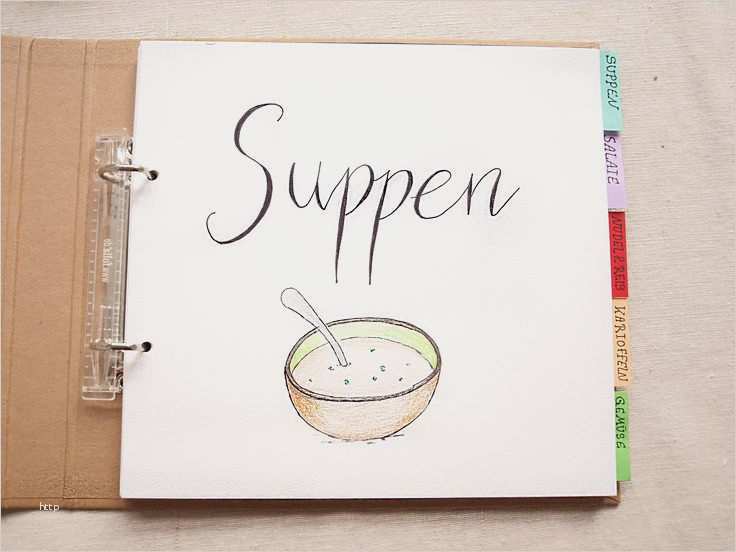 Suppen
SUPPEN
SALATE
NUDEL & REIS
KARTOFFELN
GEMÜSE
http